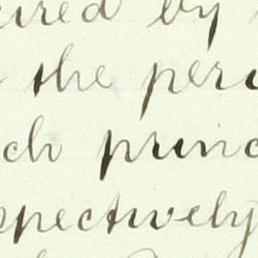 ired by
the peri
ch princ
spectively